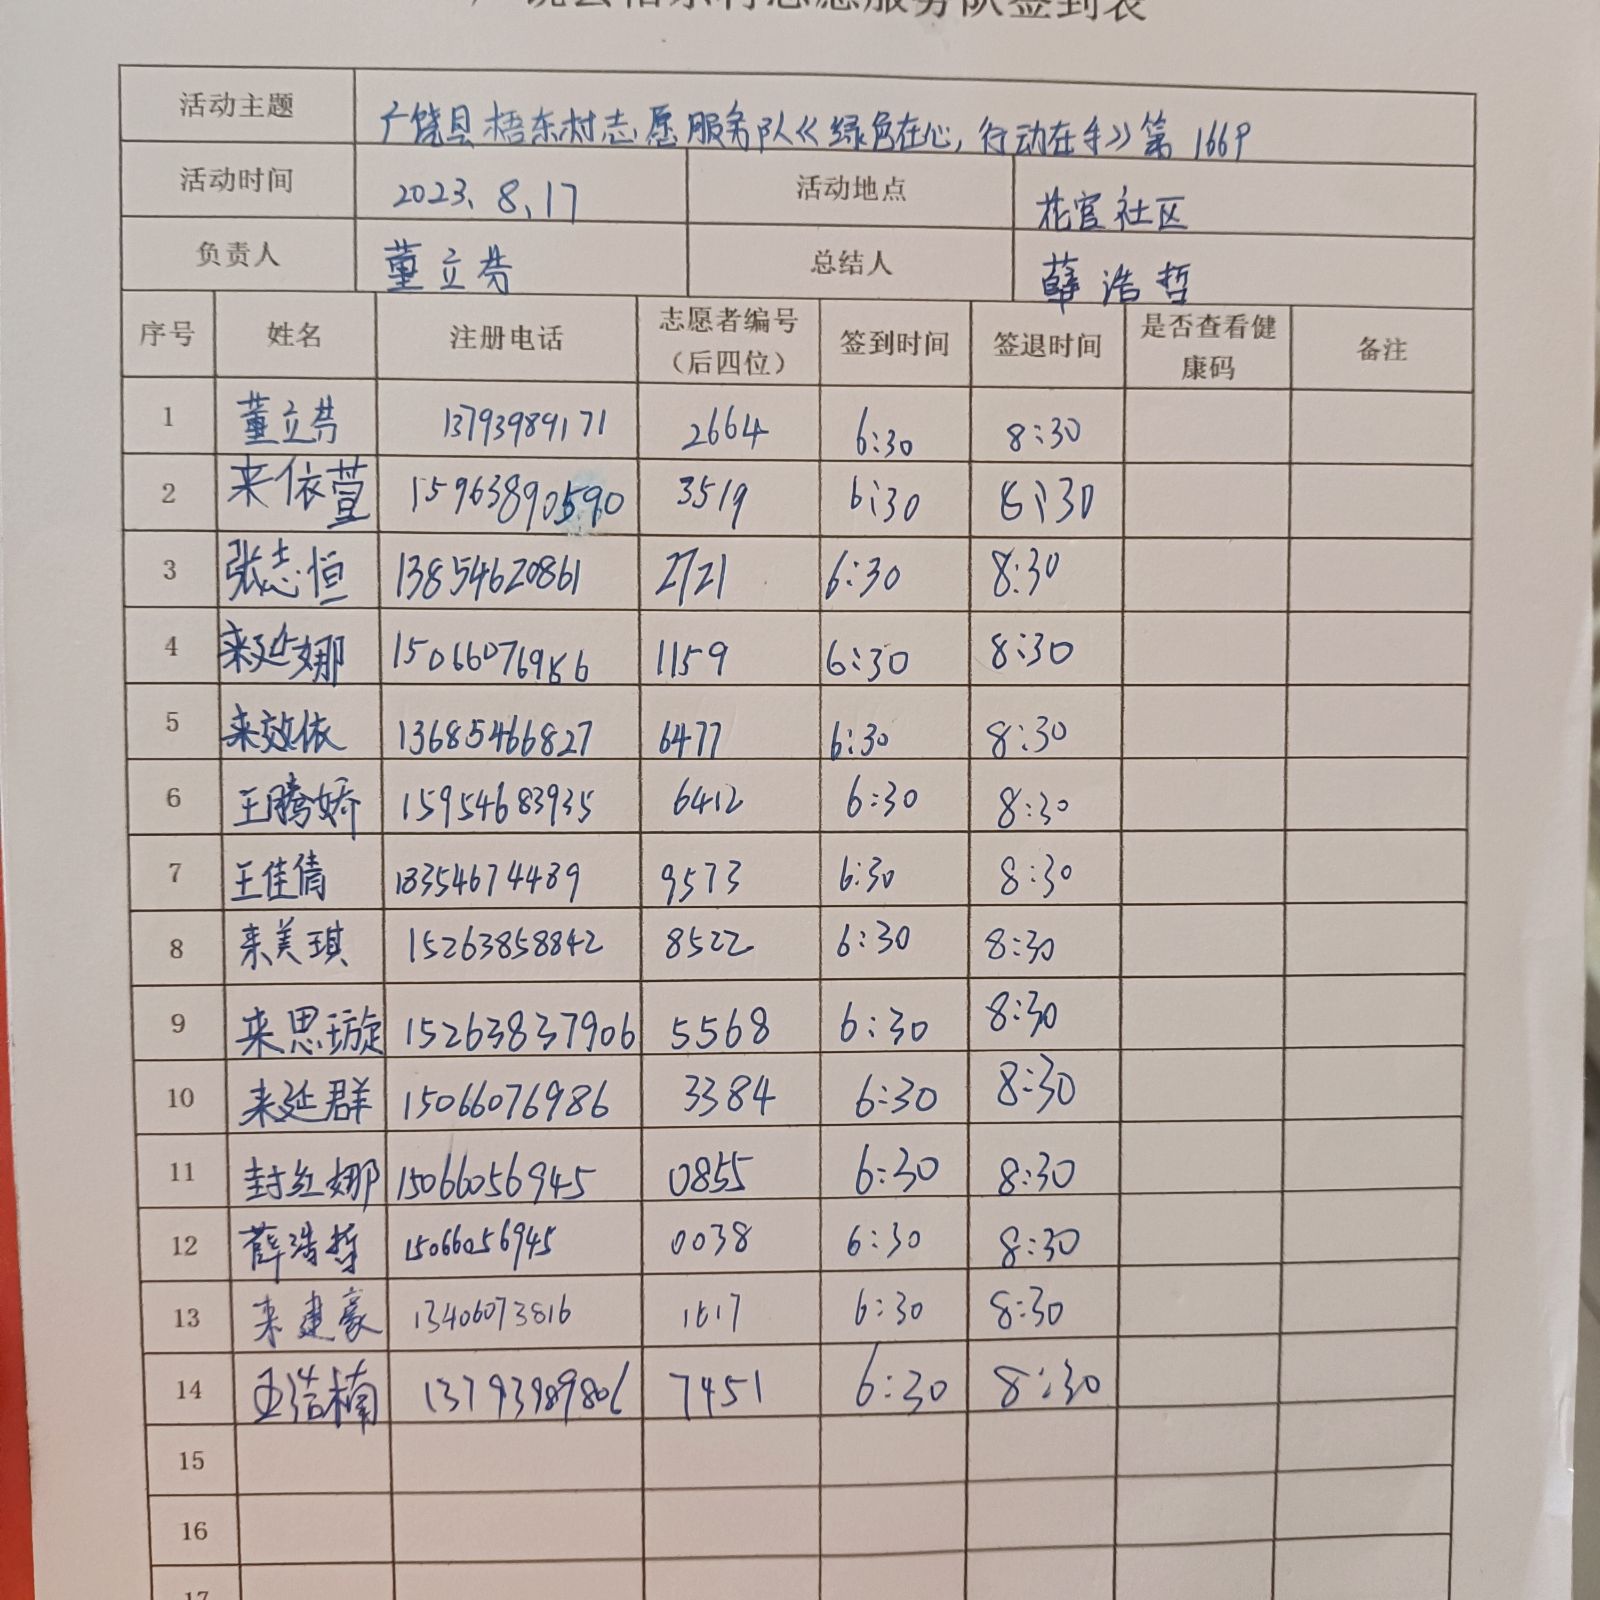 广饶县梧东村志愿服务队签到表
活动主题 广饶县梧东村志愿服务队《绿色在心,行动在手》第1669
活动时间 2023.8.17 活动地点 花官社区
负责人 董立芬 总结人 薛浩哲
序号 姓名 注册电话 志愿者编号（后四位） 签到时间 签退时间 是否查看健康码 备注
1 董立芬 13793989171 2664 6:30 8:30
2 来依萱 15963890590 3519 6:30 8:30
3 张志恒 13854620861 2721 6:30 8:30
4 来延娜 15066076986 1159 6:30 8:30
5 来效依 13685466827 6477 6:30 8:30
6 王腾娇 15954683935 6412 6:30 8:30
7 王佳倩 18354674489 9573 6:30 8:30
8 来美琪 15263858842 8522 6:30 8:30
9 来思璇 15263837906 5568 6:30 8:30
10 来延群 15066076986 3384 6:30 8:30
11 封红娜 15066056945 0855 6:30 8:30
12 薛浩哲 15066056945 0038 6:30 8:30
13 来建豪 13406073816 1617 6:30 8:30
14 王浩楠 13793989806 7451 6:30 8:30
15
16
17